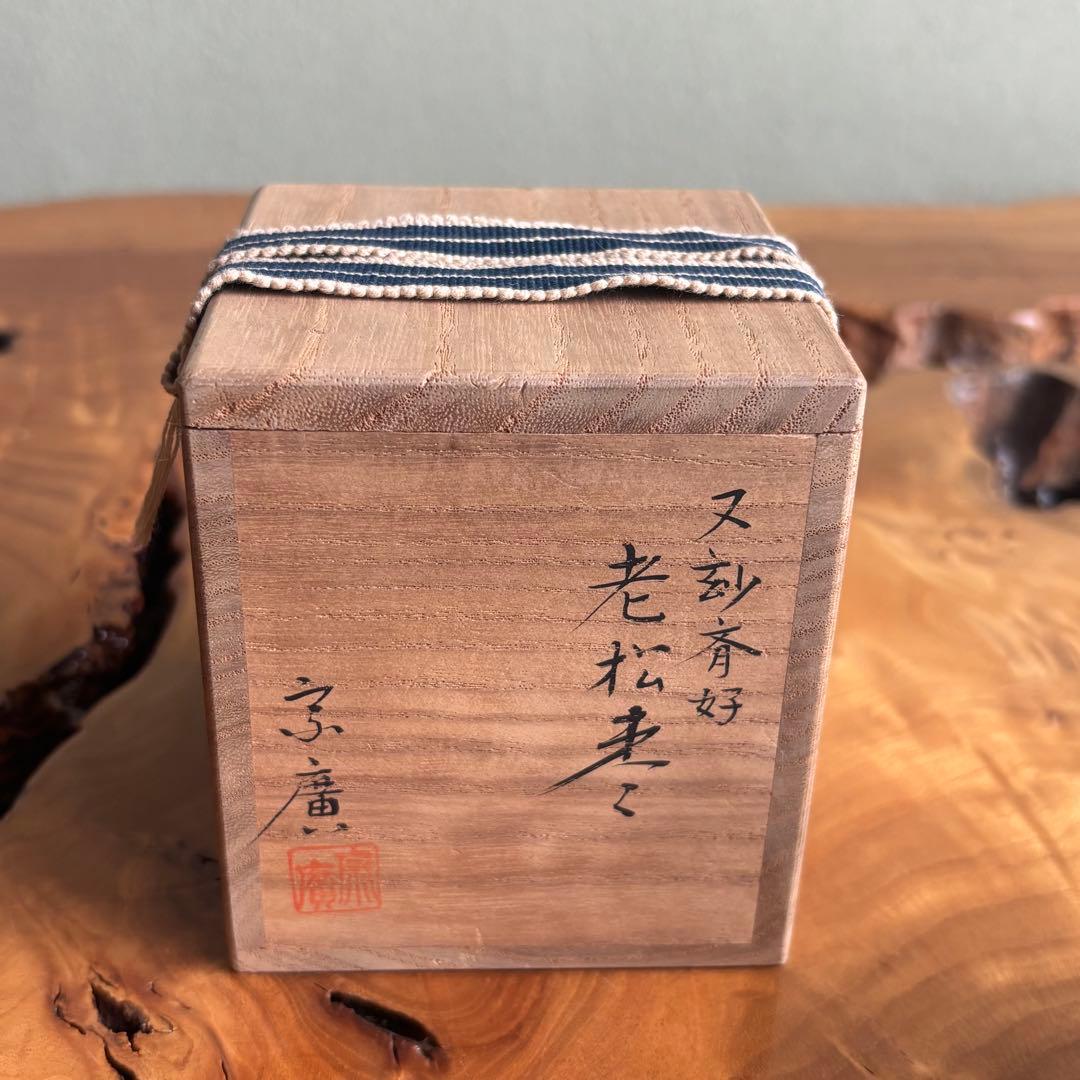 又玅斎好
老松枣
宗廣
宗廣